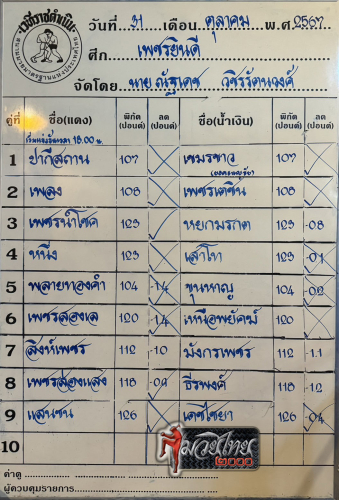 เวทีราชดำเนิน
วันที่ 31 เดือน ตุลาคม พ.ศ. 2567
ศึก เพชรยินดี
จัดโดย นายณัฐเดช วชิรรัตนวงศ์
คู่ที่ ชื่อ(แดง) พิกัด (ปอนด์) ลด (ปอนด์) ชื่อ(น้ำเงิน) พิกัด (ปอนด์) ลด (ปอนด์)
เริ่มแข่งขันเวลา 18.00 น.
1 ปากีสถาน 107 เขมรขาว 107
2 เพลง 108 เพชรเตชิน 108
3 เพชรนำโชค 123 หยกมรกต 123 -0.8
4 หนึ่ง 123 เล่าโท 123 -0.1
5 พลายทองคำ 104 -1.4 ขุนหาญ 104 -0.2
6 เพชรสองเล 120 -1.4 เหนือพยัคฆ์ 120
7 สิงห์เพชร 112 -1.0 มังกรเพชร 112 -1.1
8 เพชรส่องแสง 118 -0.9 ธีรพงศ์ 118 -1.2
9 แสนซน 126 เดชไชยา 126 -0.4
10
คำดู
ผู้ควบคุมรายการ
มวยไทย
2000